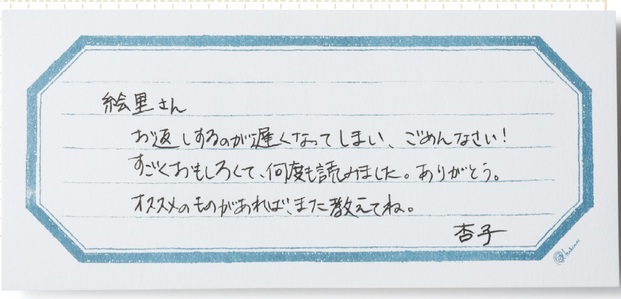 絵里さん
お返しするのが遅くなってしまい、ごめんなさい！
すごくおもしろくて、何度も読みました。ありがとう。
オススメのものがあれば、また教えてね。
杏子